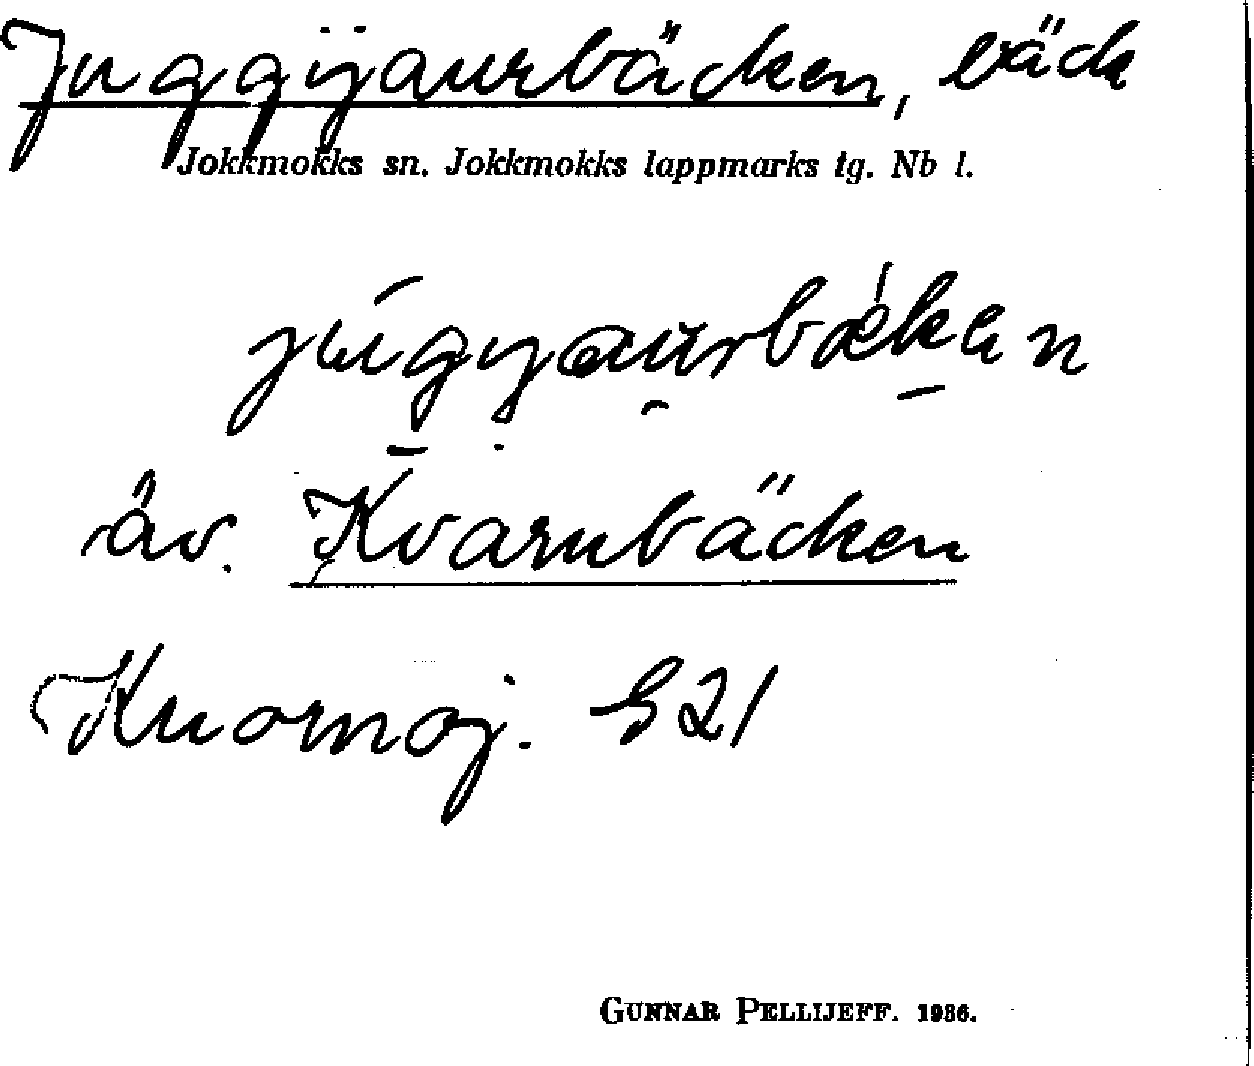 Juggijaurbäcken, bäck
Jokkmokks sn. Jokkmokks lappmarks tg. Nb l.
äv. Kvarnbäcken
Kuornoj. S21
GUNNAR PELLIJEFF. 1936.